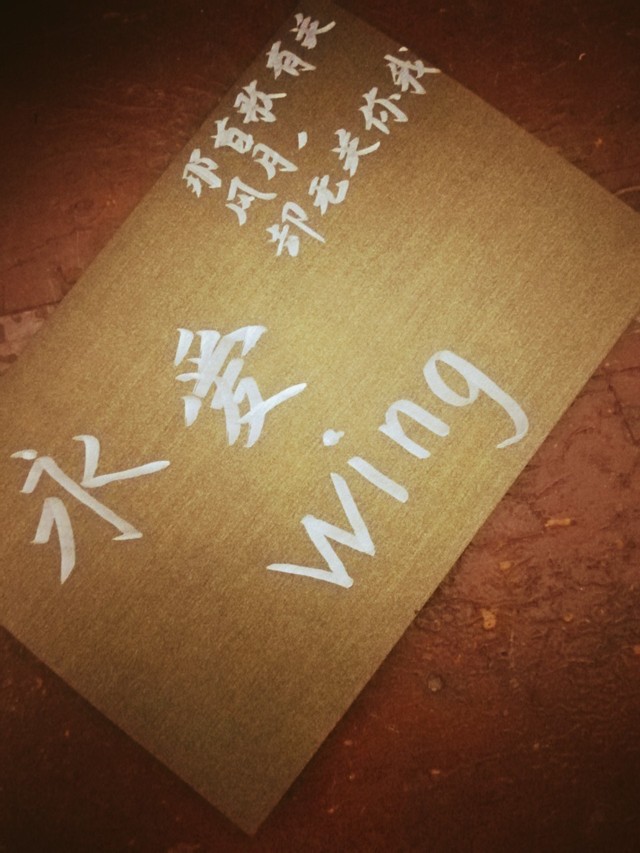 那首歌有关
风月，
却无关你我
永爱
wing